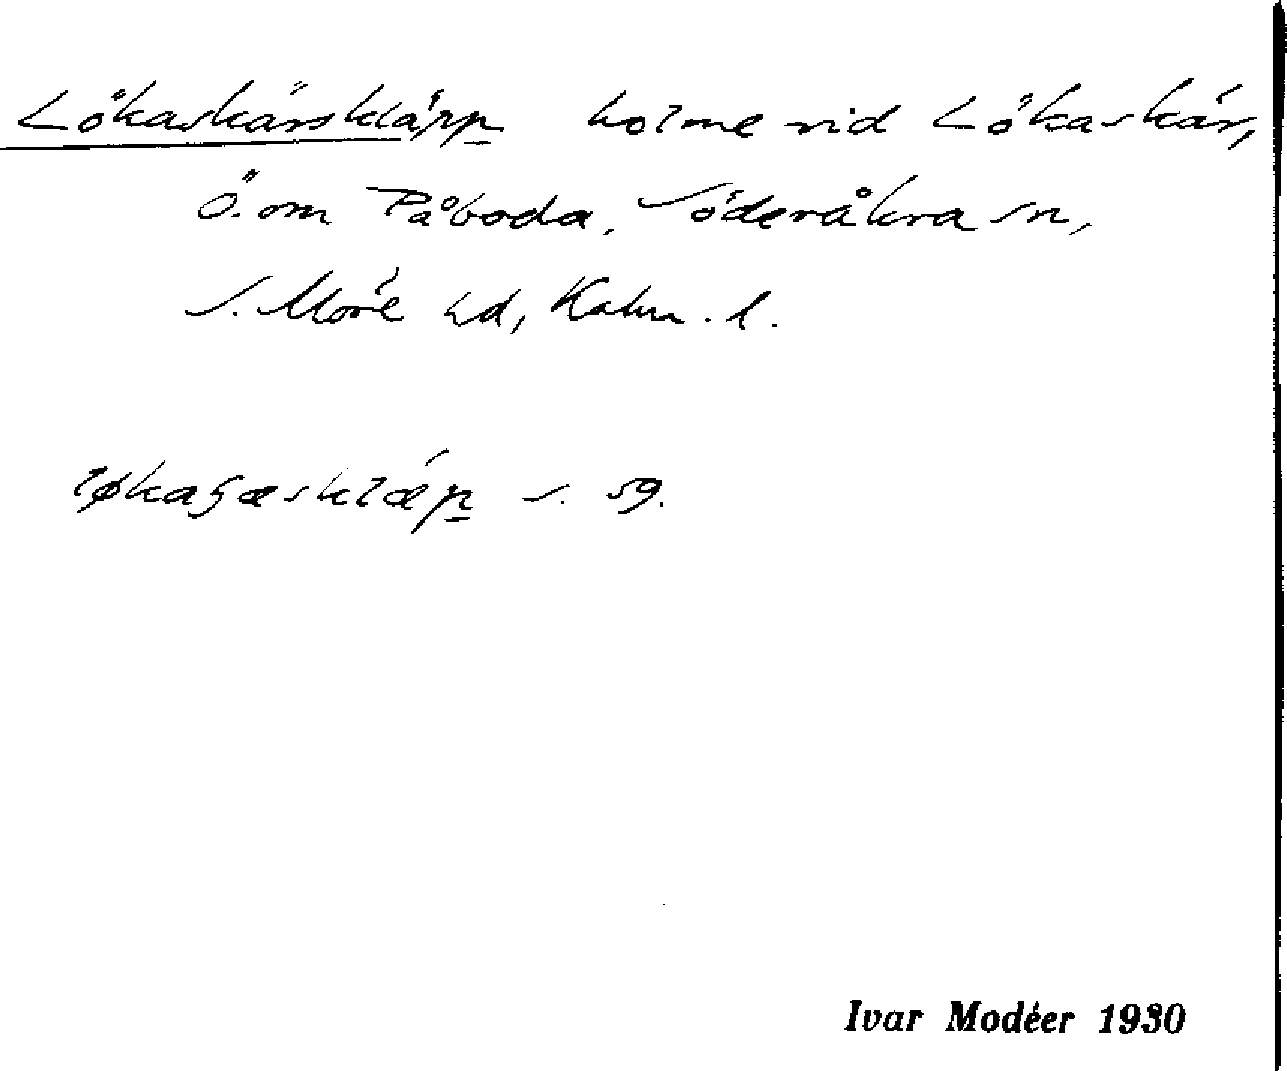 Lökaskärskläpp holme vid Lökaskär,
Ö. om Påboda, Söderåkra sn,
S. Möre hd, Kalm. l.
løkaʂæsklæp s. 59.
Ivar Modéer 1930